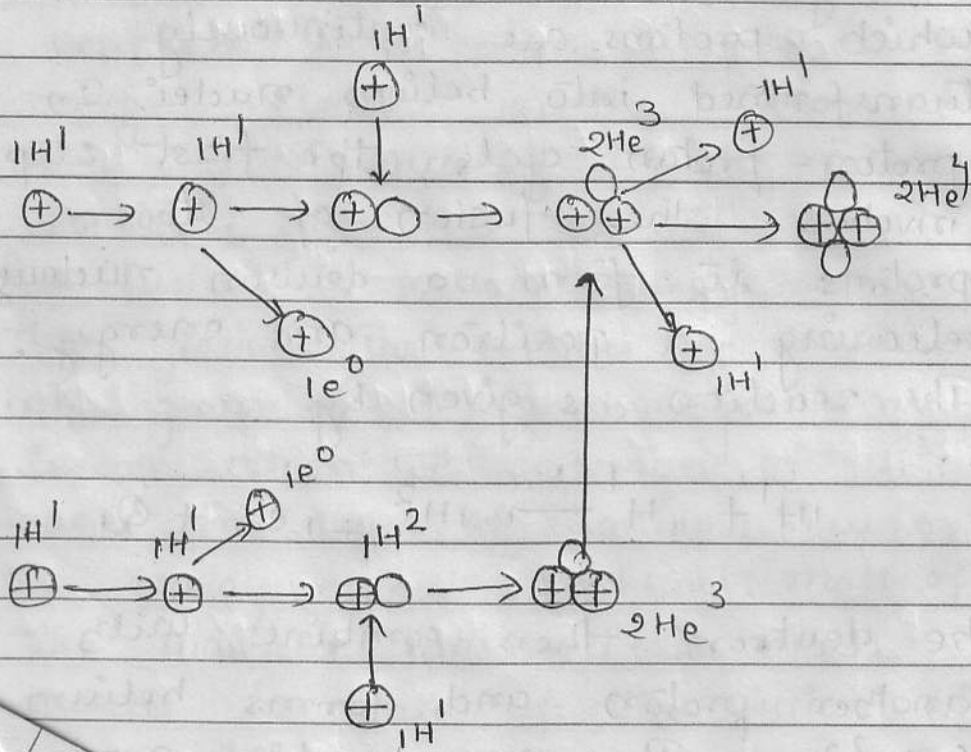 1H1
+
1H1
2He3
+
1H1
1H1
2He4
+
+
+
+
+
+
+
+
1e0
+
1H1
+
1e0
1H1
1H1
1H2
+
+
+
+
+
2He3
+
1H1